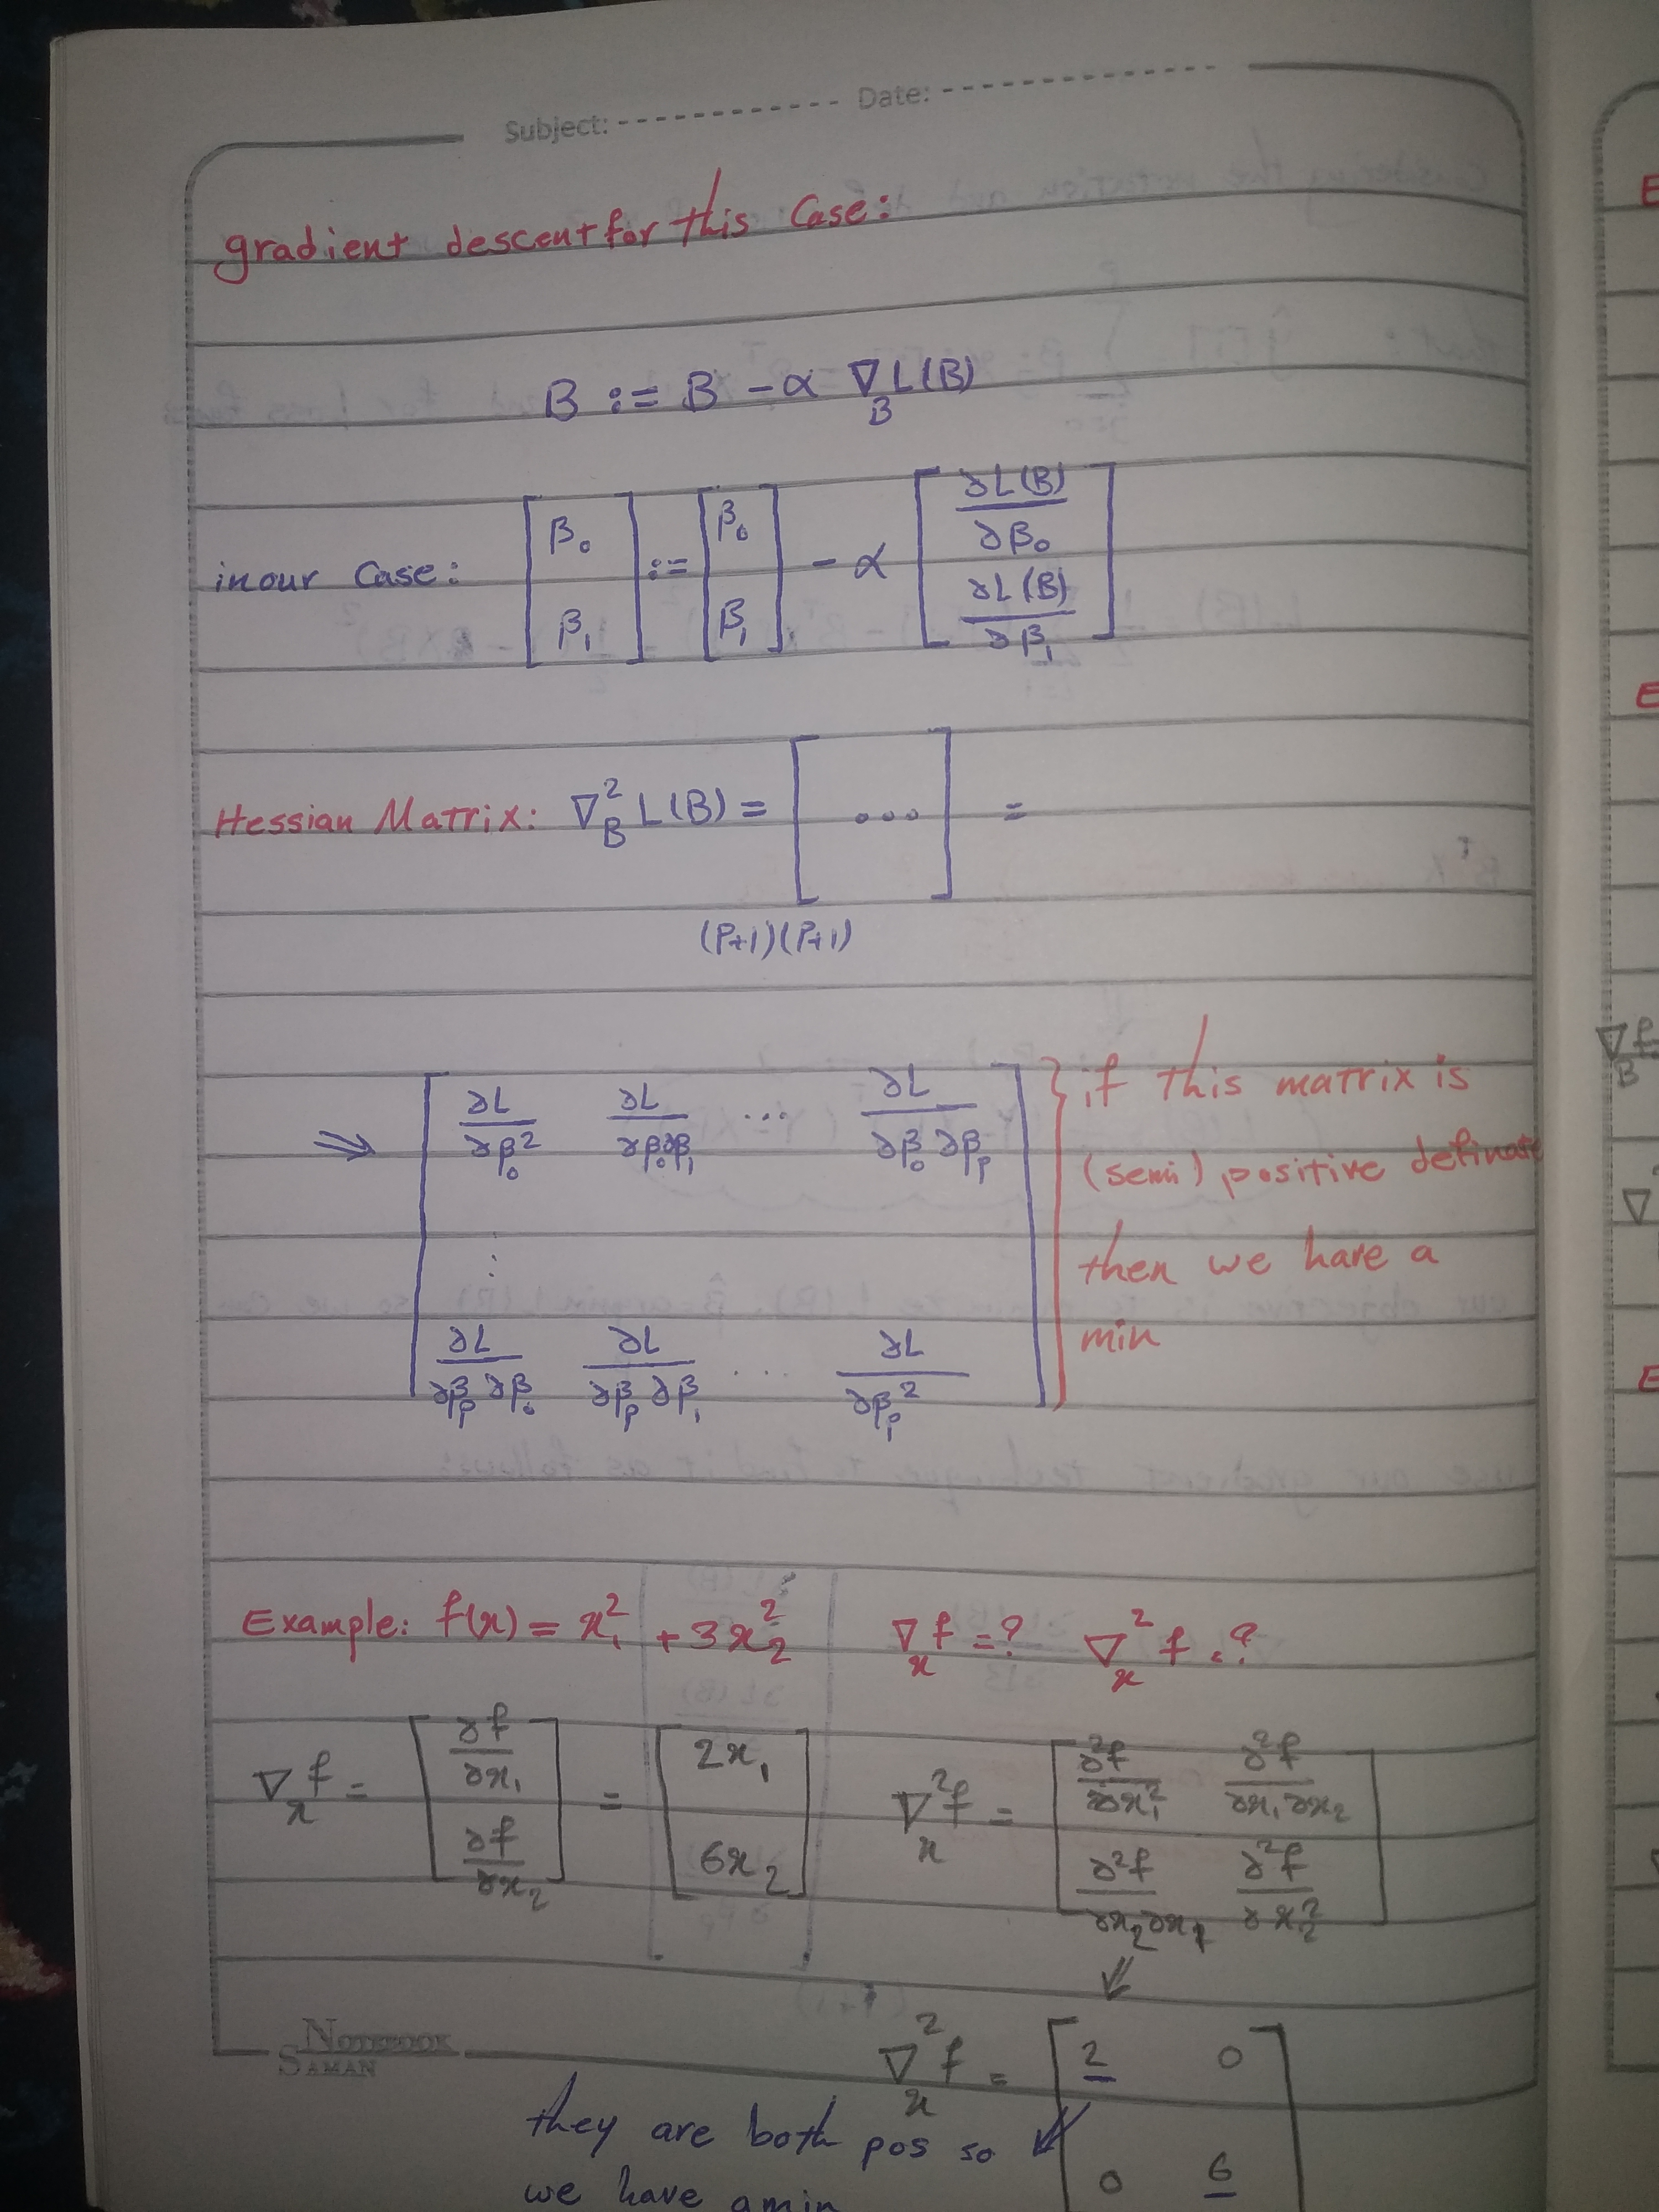 Subject: Date:
gradient descent for this Case:
B := B - α ∇_B L(B)
in our Case: [β₀ β₁] := [β₀ β₁] - α [∂L(B)/∂β₀ ∂L(B)/∂β₁]
Hessian Matrix: ∇²_B L(B) = [ ... ] =
(P+1)(P+1)
⇒ [∂L/∂β₀² ∂L/∂β₀∂β₁ ... ∂L/∂β₀∂βₚ
⋮
∂L/∂βₚ∂β₀ ∂L/∂βₚ∂β₁ ... ∂L/∂βₚ²]
} if this matrix is
(semi) positive definate
then we have a
min
Example: f(x) = x₁² + 3x₂² ∇_x f = ? ∇²_x f = ?
∇_x f = [∂f/∂x₁ ∂f/∂x₂] = [2x₁ 6x₂] ∇²_x f = [∂²f/∂x₁² ∂²f/∂x₁∂x₂ ∂²f/∂x₂∂x₁ ∂²f/∂x₂²]
NOTEBOOK
SAMAN
∇²_x f = [2 0 0 6]
they are both pos so
we have a min